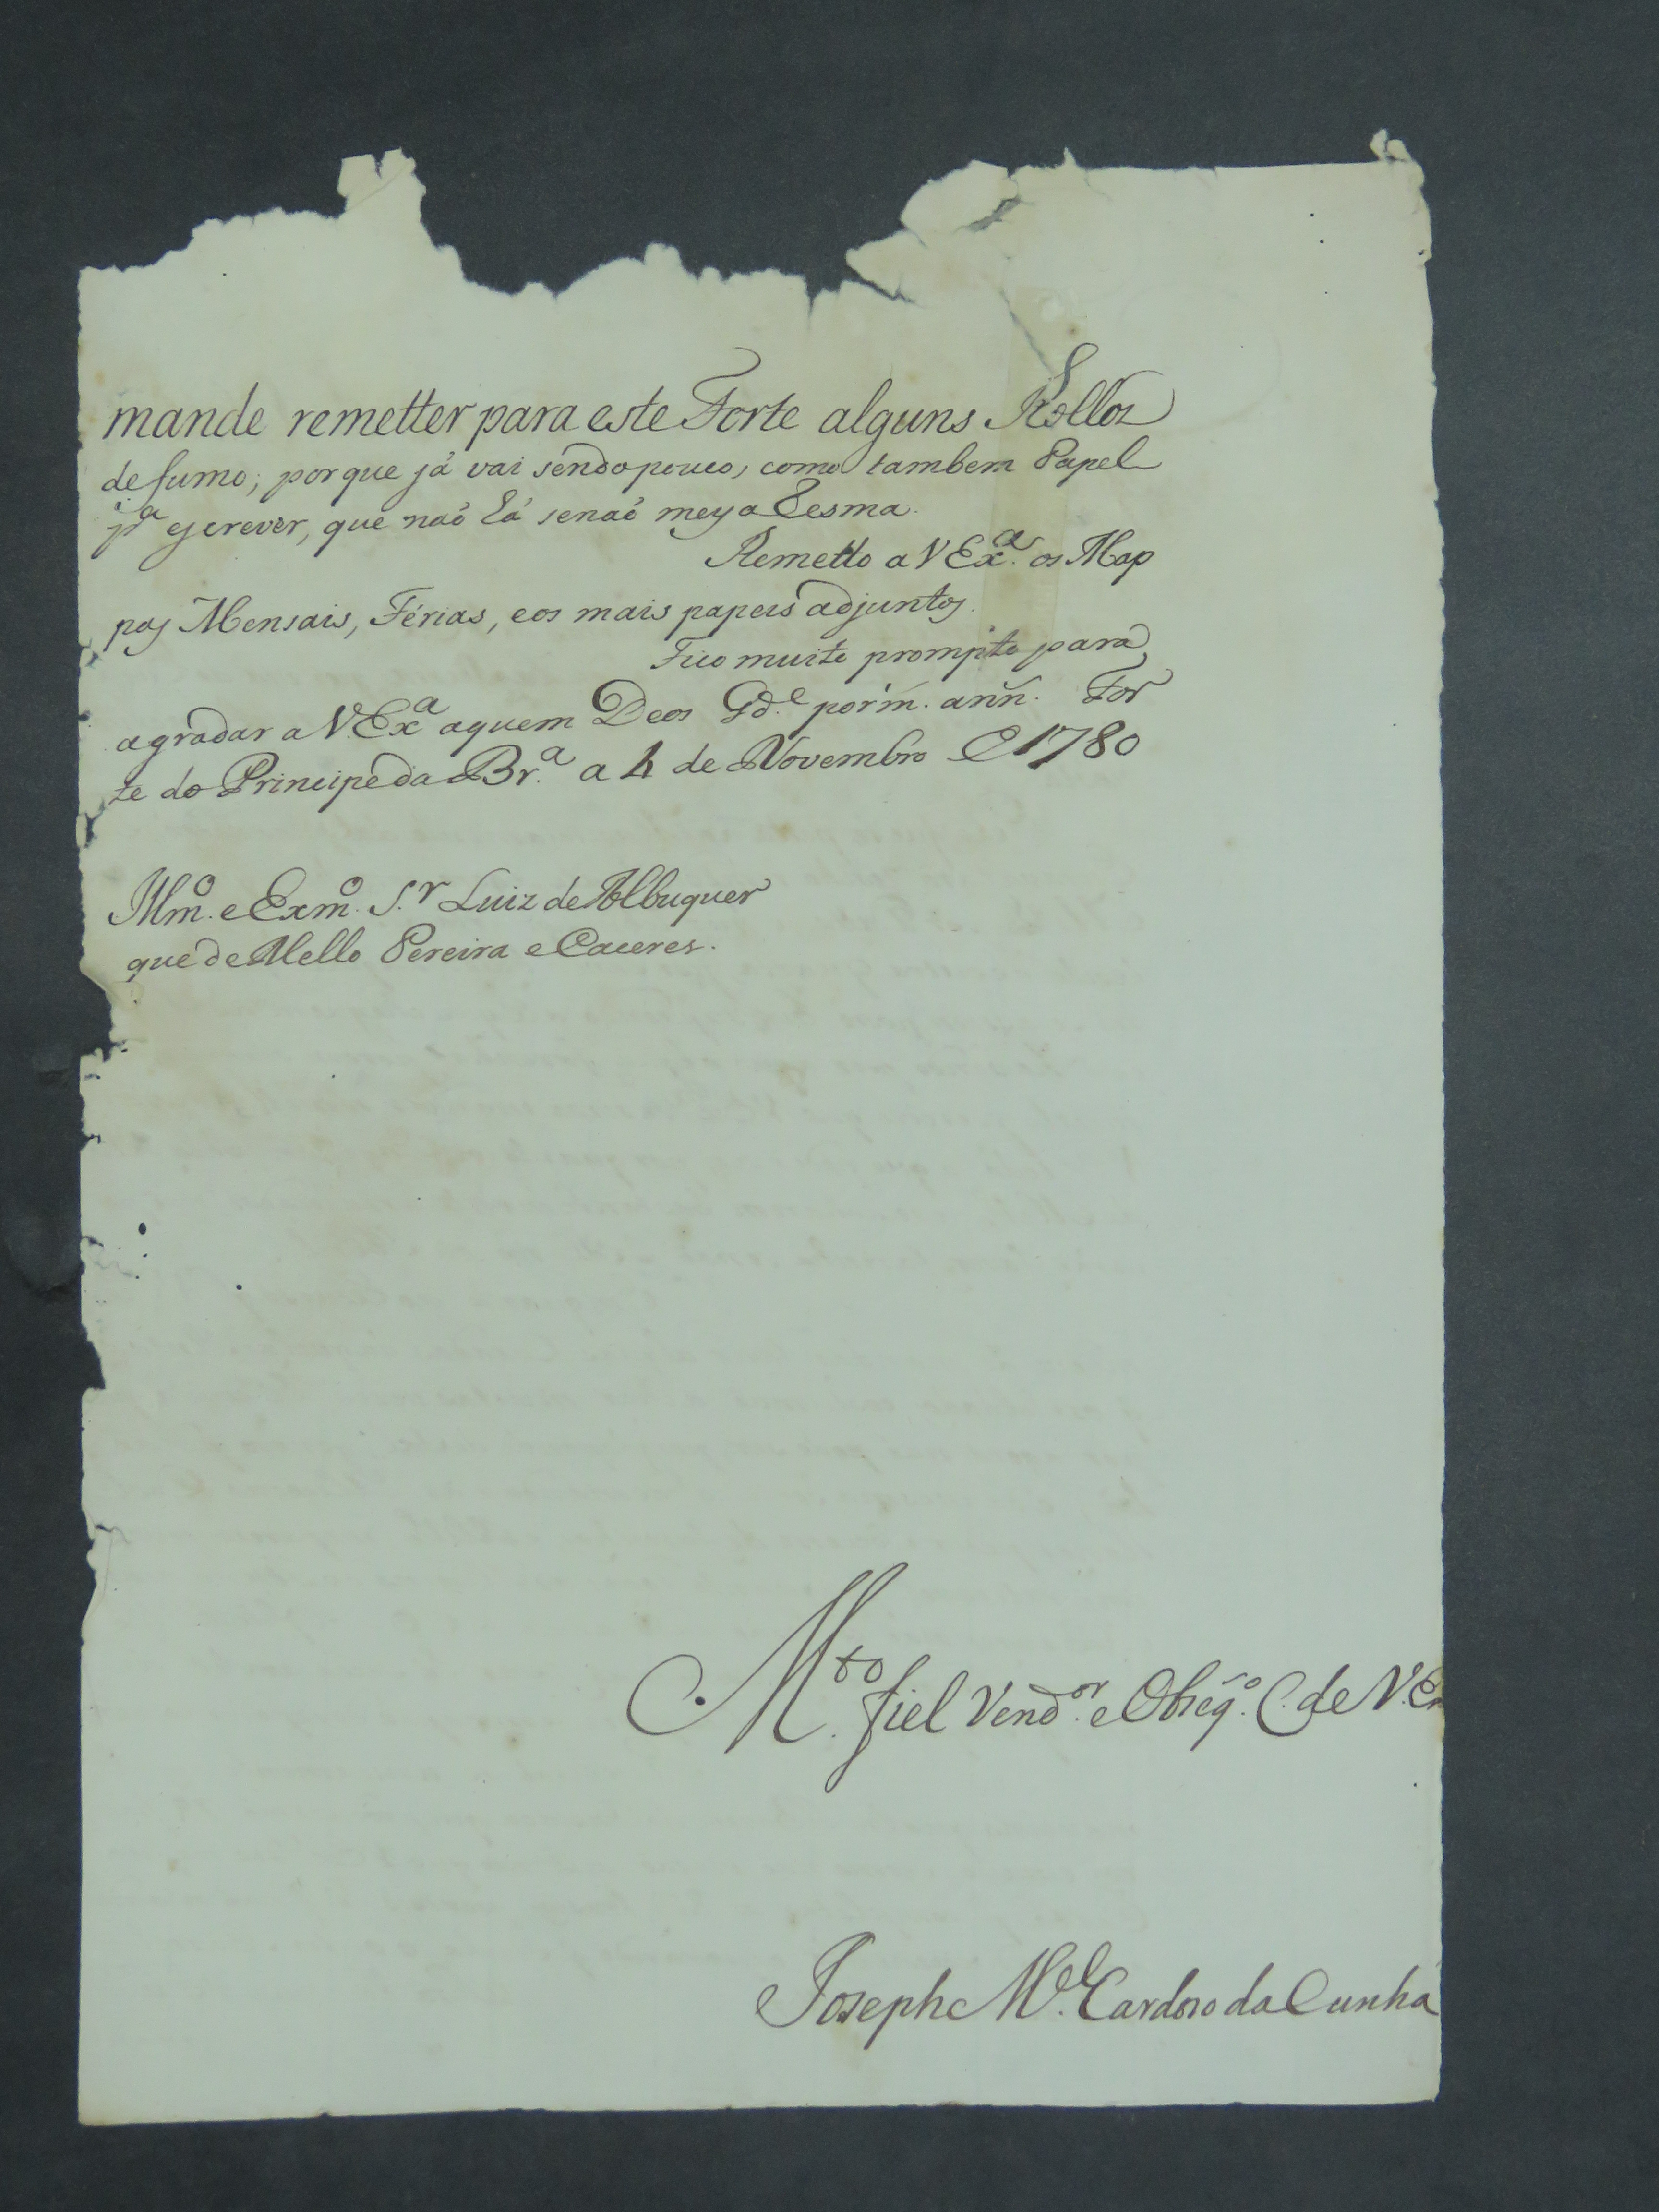 mande remetter para este Forte alguns Rollos
de fumo; porque já vai sendo pouco, como tambem Papel
pª escrever, que naõ há senaõ meya Resma.
Remetto a V Exª. os Map
pas Mensais, Férias, e os mais papeis adjuntos.
Fico muito prompto para
agradar a V. Exª aquem Deos Gd.e por m. ann. For
te do Principe da Br.ª a 4 de Novembro de 1780
Illmº. e Exmº. S.r Luiz de Albuquer
que de Mello Pereira e Caceres.
M.to fiel Vend.or e Obseqº. C. de V. Ex
Joseph M.el Cardoso da Cunha